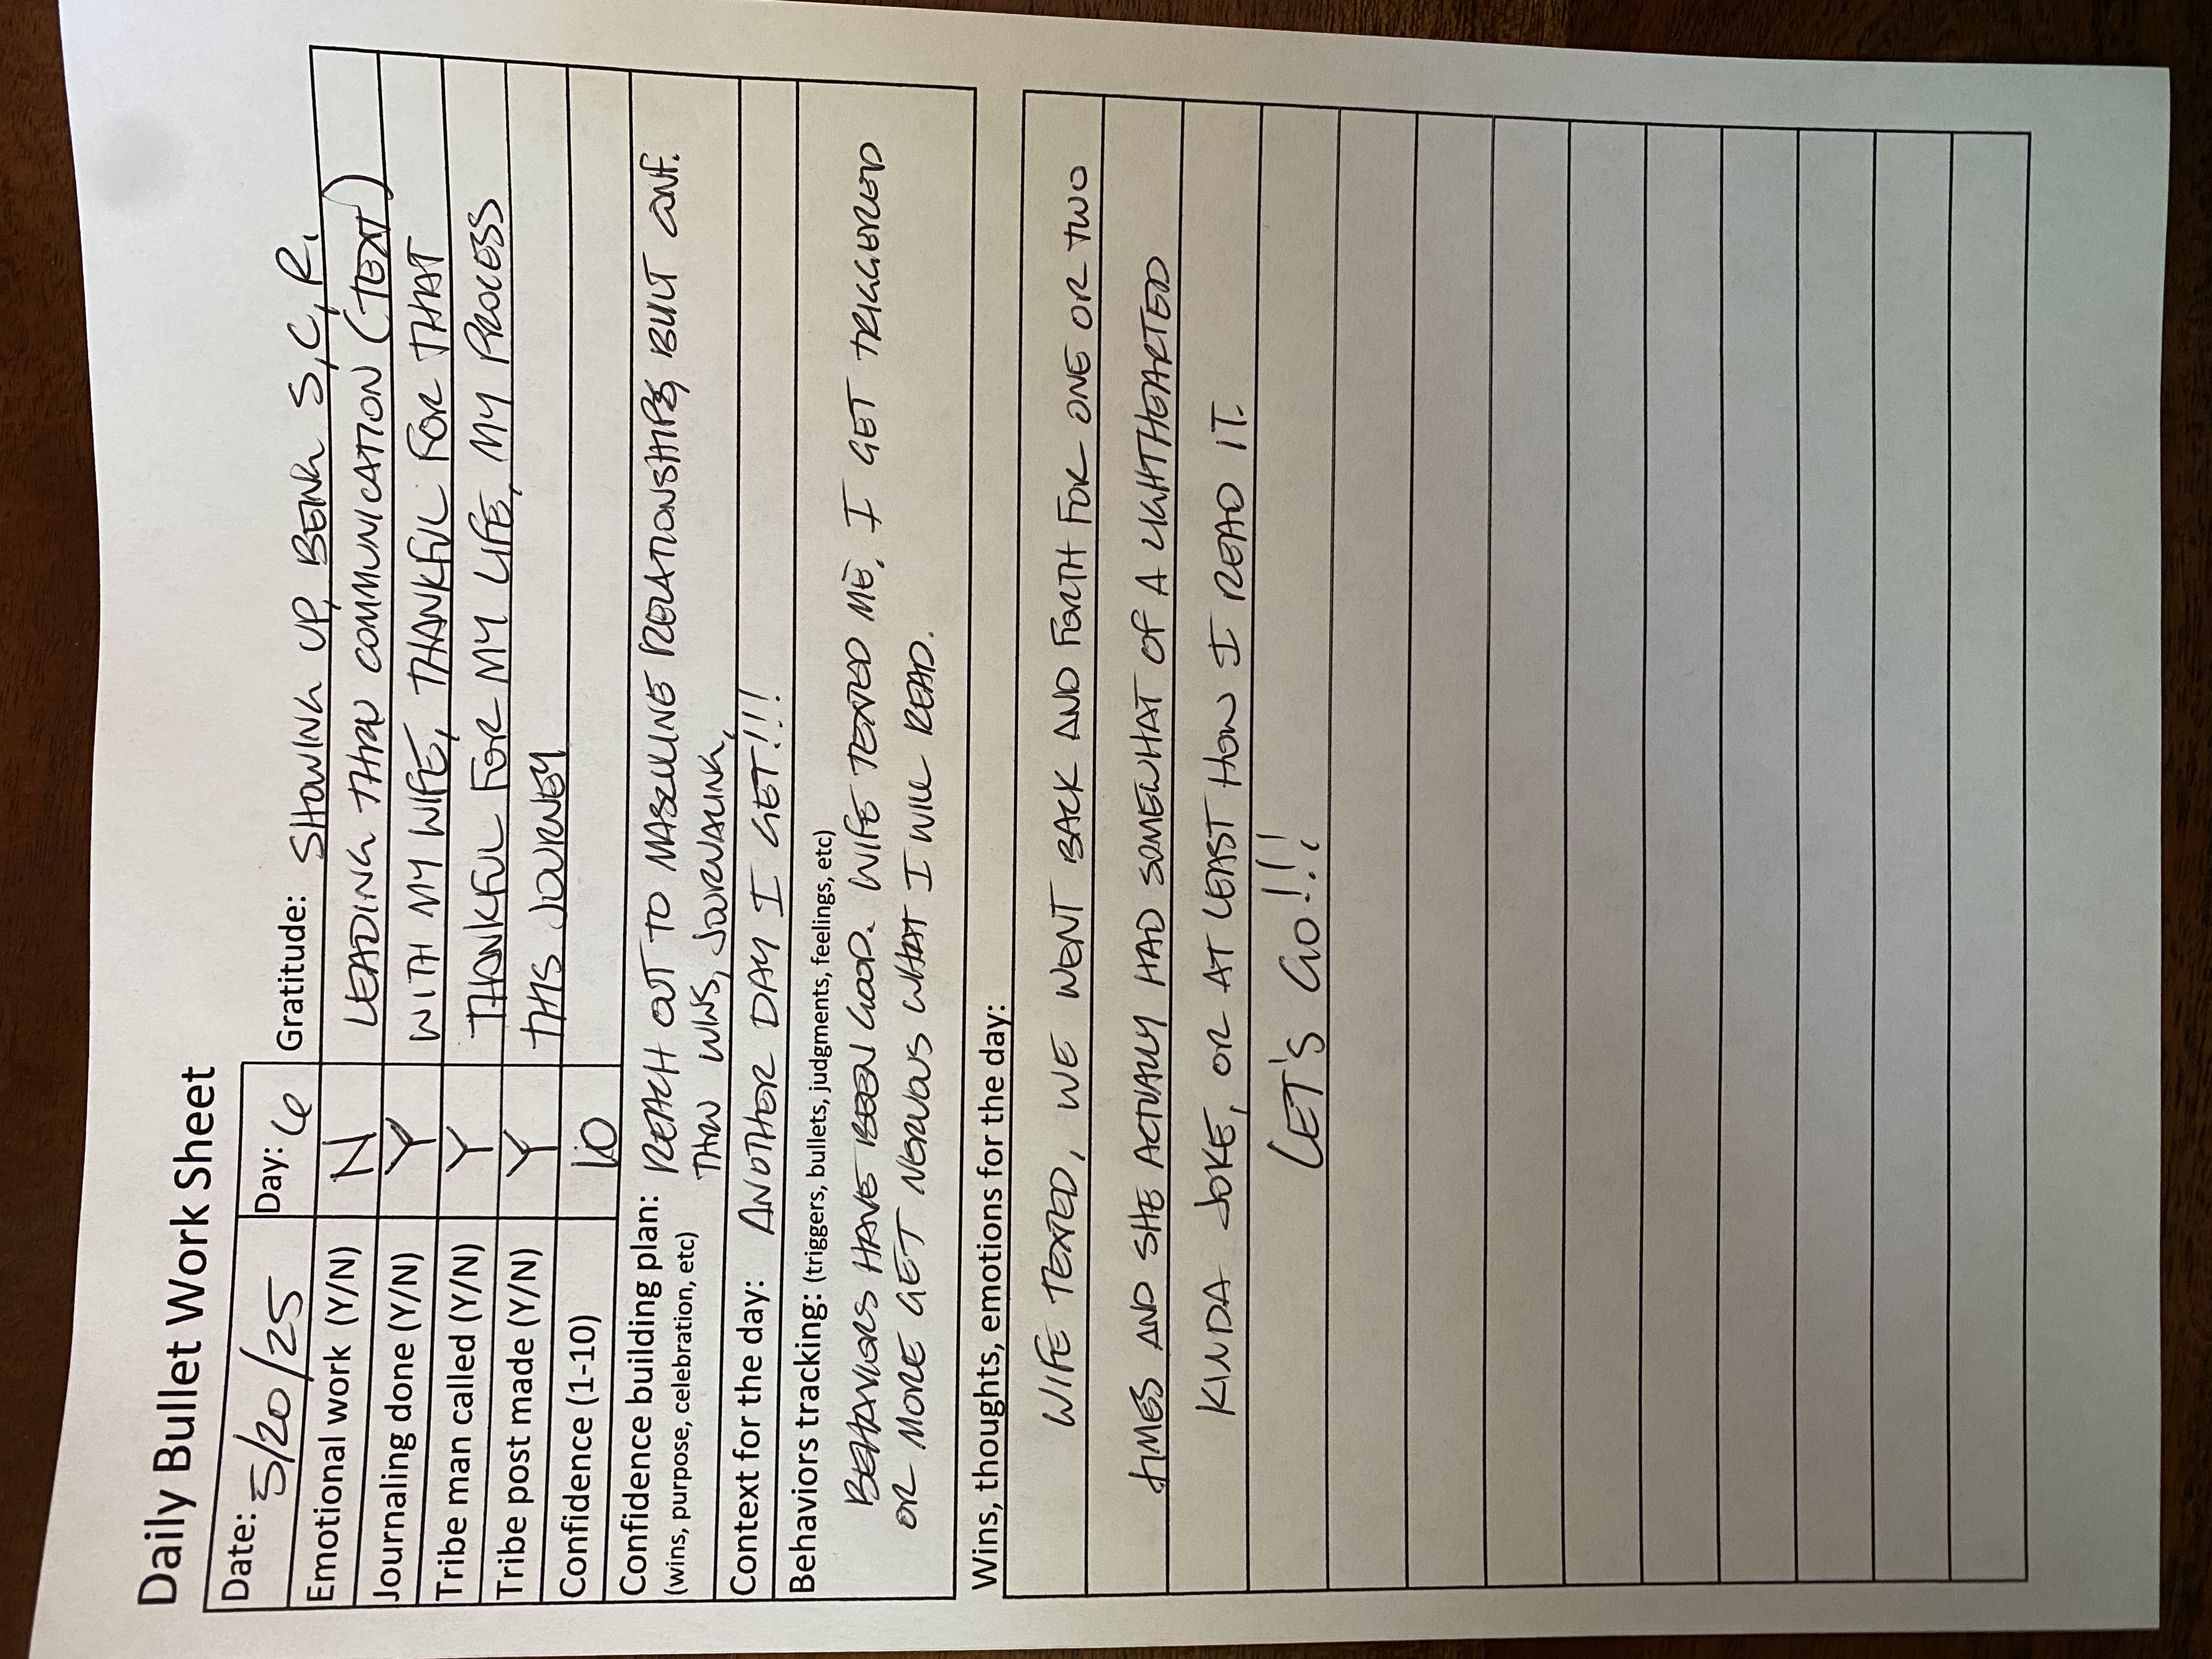 Daily Bullet Work Sheet
Date: 5/20/25 Day: 6 Gratitude: SHOWING UP, BEING S, C, R,
Emotional work (Y/N) N LEADING THRU COMMUNICATION (TEXT)
Journaling done (Y/N) Y WITH MY WIFE, THANKFUL FOR THAT
Tribe man called (Y/N) Y THANKFUL FOR MY LIFE, MY PROCESS
Tribe post made (Y/N) Y THIS JOURNEY
Confidence (1-10) 10
Confidence building plan: REACH OUT TO MASCULINE RELATIONSHIPS, BUILT CONF.
(wins, purpose, celebration, etc) THRU WINS, JOURNALING,
Context for the day: ANOTHER DAY I GET!!!
Behaviors tracking: (triggers, bullets, judgments, feelings, etc)
BEHAVIORS HAVE BEEN GOOD. WIFE TEXTED ME, I GET TRIGGERED
OR MORE GET NERVOUS WHAT I WILL READ.
Wins, thoughts, emotions for the day:
WIFE TEXTED, WE WENT BACK AND FORTH FOR ONE OR TWO
TIMES AND SHE ACTUALLY HAD SOMEWHAT OF A LIGHTHEARTED
KINDA JOKE, OR AT LEAST HOW I READ IT.
LET'S GO!!!